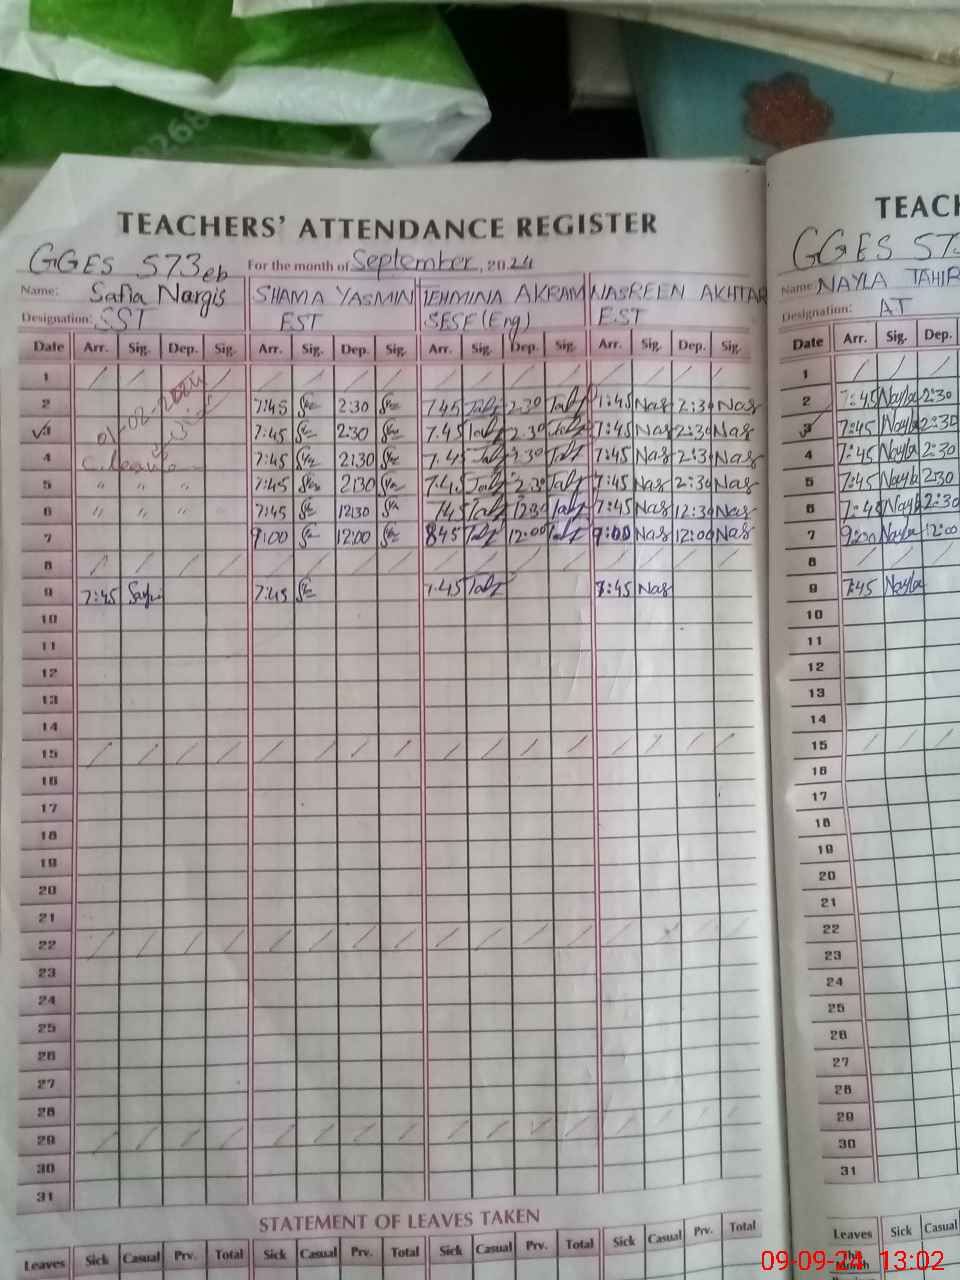 TEACHERS' ATTENDANCE REGISTER
GGES 573 eb For the month of September, 2024
Name: Safia Nargis SHAMA YASMIN TEHMINA AKRAM NASREEN AKHTAR
Designation: SST EST SESE (Eng) EST
Date Arr. Sig. Dep. Sig. Arr. Sig. Dep. Sig. Arr. Sig. Dep. Sig. Arr. Sig. Dep. Sig.
1
2 7:45 2:30 7.45 2.30 7:45 Nas 2:30 Nas
3 7:45 2:30 7.45 2.30 7:45 Nas 2:30 Nas
4 C.leave 7:45 2:30 7.45 2.30 7:45 Nas 2:30 Nas
5 " " " 7:45 2:30 7.45 2.30 7:45 Nas 2:30 Nas
6 " " " 7:45 12:30 7.45 12.30 7:45 Nas 12:30 Nas
7 9:00 12:00 8.45 12:00 9:00 Nas 12:00 Nas
8
9 7:45 7:45 7.45 7:45 Nas
10
11
12
13
14
15
16
17
18
19
20
21
22
23
24
25
26
27
28
29
30
31
STATEMENT OF LEAVES TAKEN
Leaves Sick Casual Prv. Total Sick Casual Prv. Total Sick Casual Prv. Total Sick Casual Prv. Total
TEACH
GGES 573
Name NAYLA TAHIR
Designation: AT
Date Arr. Sig. Dep.
1
2 7:45 Nayla 2:30
3 7:45 Nayla 2:30
4 7:45 Nayla 2:30
5 7:45 Nayla 2:30
6 7:45 Nayla 2:30
7 9:00 Nayla 12:00
8
9 7:45 Nayla
10
11
12
13
14
15
16
17
18
19
20
21
22
23
24
25
26
27
28
29
30
31
Leaves Sick Casual
Month
09-09-24 13:02